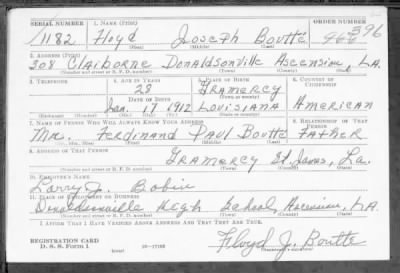 SERIAL NUMBER 1. NAME (Print) ORDER NUMBER
1182 Floyd Joseph Boutté 396
(First) (Middle) (Last)
2. ADDRESS (Print)
308 Claiborne Donaldsonville Ascension, LA.
(Number and street or R. F. D. number) (Town) (County) (State)
3. TELEPHONE 4. AGE IN YEARS 5. PLACE OF BIRTH 6. COUNTRY OF CITIZENSHIP
28 Gramercy
DATE OF BIRTH (Town or county)
Jan. 17 1912 Louisiana American
(Mo.) (Day) (Yr.) (State or country)
7. NAME OF PERSON WHO WILL ALWAYS KNOW YOUR ADDRESS 8. RELATIONSHIP OF THAT PERSON
Mr. Ferdinand Paul Boutte Father
(Mr., Mrs., Miss) (First) (Middle) (Last)
9. ADDRESS OF THAT PERSON
Gramercy St. James, La.
(Number and street or R. F. D. number) (Town) (County) (State)
10. EMPLOYER'S NAME
Larry J. Babin
11. PLACE OF EMPLOYMENT OR BUSINESS
Donaldsonville High School, Ascension, LA.
(Number and street or R. F. D. number) (Town) (County) (State)
I AFFIRM THAT I HAVE VERIFIED ABOVE ANSWERS AND THAT THEY ARE TRUE.
REGISTRATION CARD
D. S. S. Form 1 (over) Floyd J. Boutte